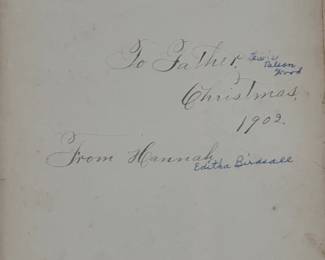 To Father, Lewis
Nelson
Wood
Christmas,
1902.
From Hannah
Editha Birdsall